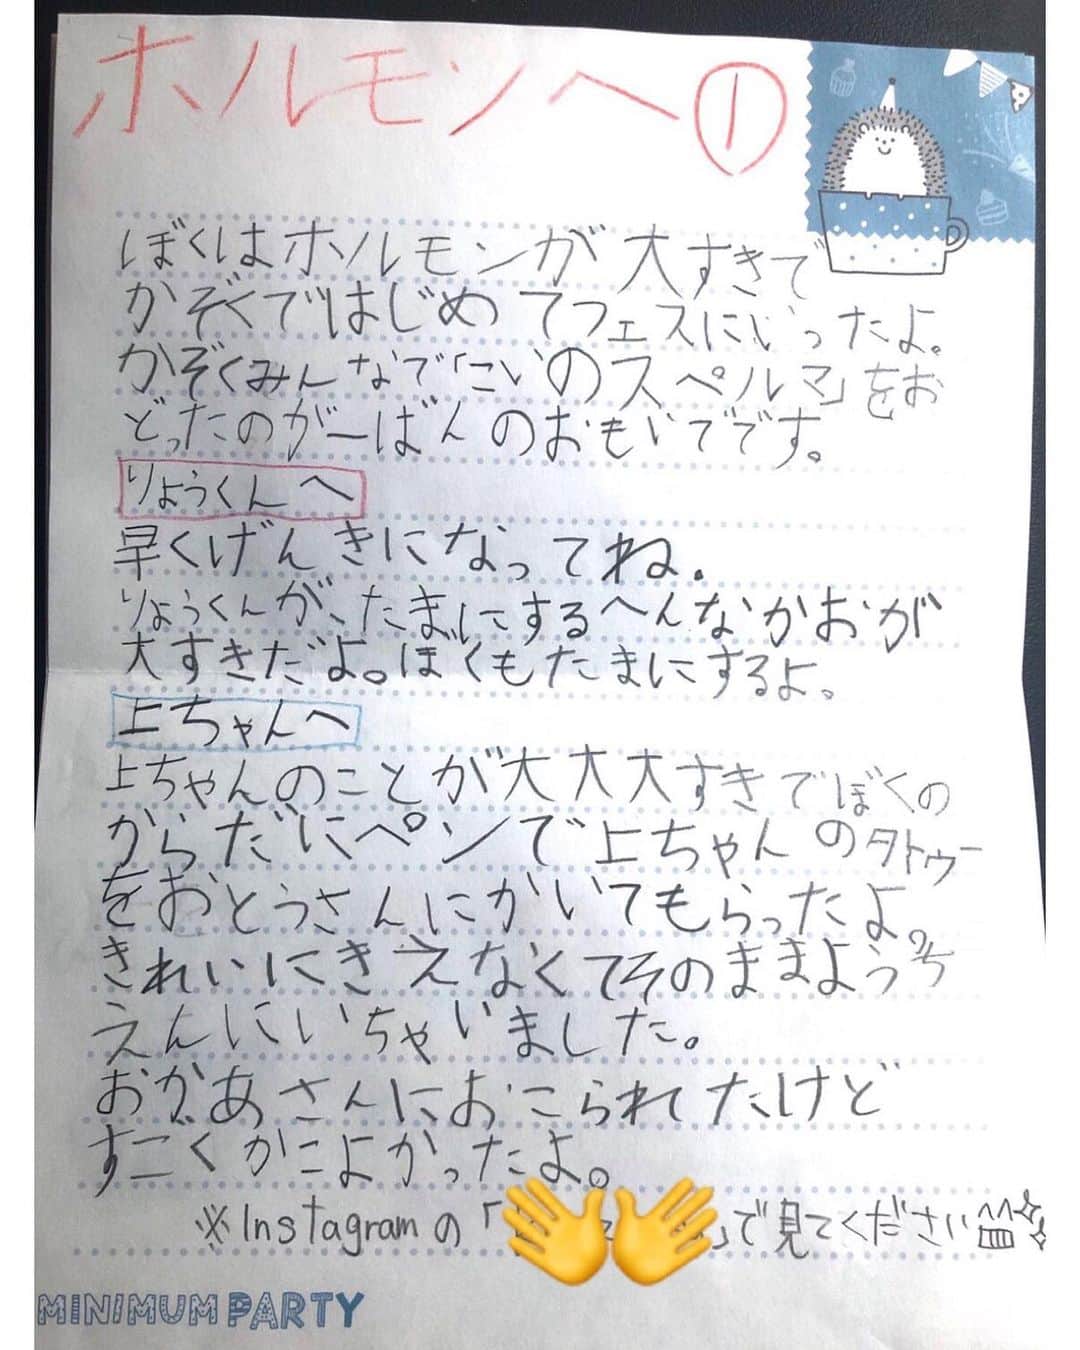 ホルモンへ①
ぼくはホルモンが大すきで
かぞくではじめてフェスにいったよ。
かぞくみんなで「こいのスペルマ」をお
どったのが一ばんのおもいでです。
りょうくんへ
早くげんきになってね.
りょうくんが、たまにするへんなかおが
大すきだよ。ぼくもたまにするよ。
上ちゃんへ
上ちゃんのことが大大大すきでぼくの
からだにペンで上ちゃんのタトゥー
をおとうさんにかいてもらったよ。
きれいにきえなくてそのままようち
えんにいちゃいました。
おかあさんにおこられたけど
すごくかこよかったよ。
※Instagramの「 」で見てください
MINIMUM PARTY